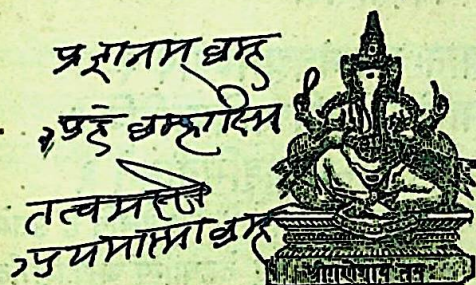 प्रज्ञानम ब्रम्ह
अहं ब्रम्हास्मि
तत्वमसि
अयमात्मा ब्रम्ह
श्री गणेशाय नमः